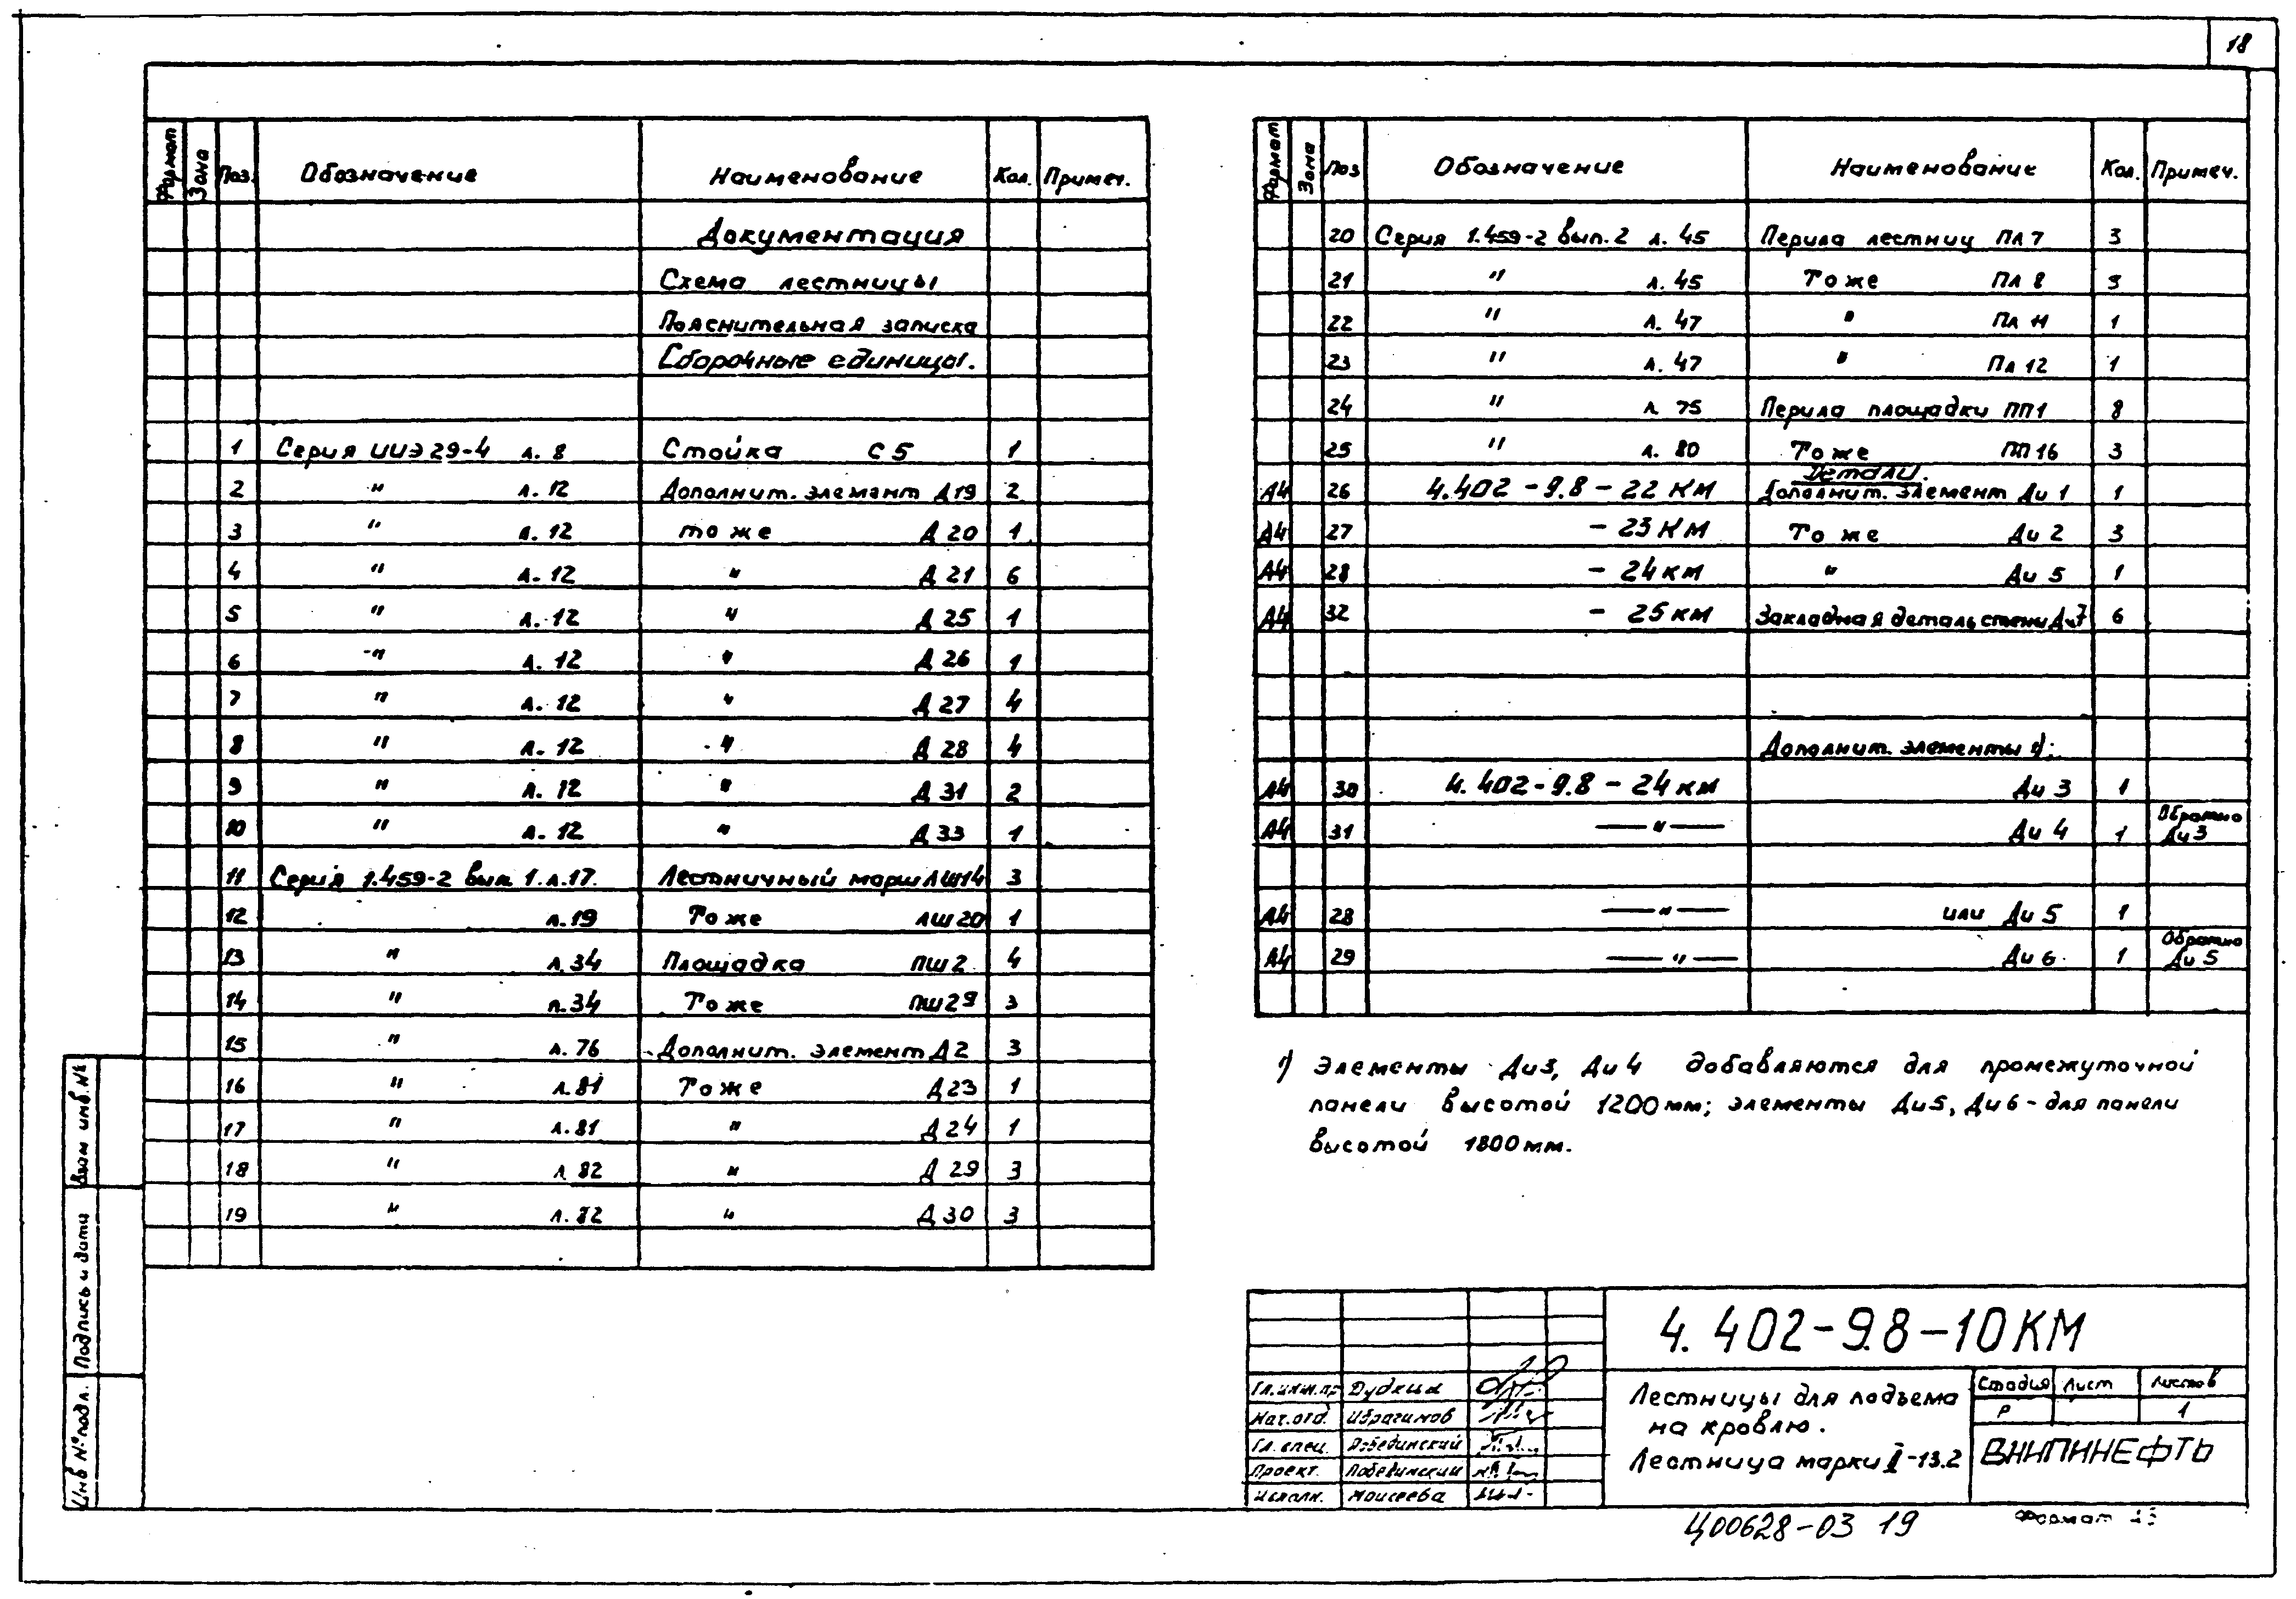 18
Формат Зона Поз. Обозначение Наименование Кол. Примеч.
Документация
Схема лестницы
Пояснительная записка
Сборочные единицы.
1 Серия ИИЭ29-4 л. 8 Стойка С 5 1
2 " л. 12 Дополнит. элемент Д19 2
3 " л. 12 тоже Д 20 1
4 " л. 12 " Д 21 6
5 " л. 12 " Д 25 1
6 " л. 12 " Д 26 1
7 " л. 12 " Д 27 4
8 " л. 12 " Д 28 4
9 " л. 12 " Д 31 2
10 " л. 12 " Д 33 1
11 Серия 1.459-2 вып. 1 л.17. Лестничный марш ЛШ14 3
12 л.19 Тоже ЛШ20 1
13 " л.34 Площадка ПШ2 4
14 " л.34 Тоже ПШ29 3
15 " л.76 Дополнит. элемент Д2 3
16 " л.81 Тоже Д23 1
17 " л.81 " Д24 1
18 " л.82 " Д 29 3
19 " л.82 " Д 30 3
Формат Зона Поз Обозначение Наименование Кол. Примеч.
20 Серия 1.459-2 вып. 2 л. 45 Перила лестниц ПЛ7 3
21 " л. 45 Тоже ПЛ 8 3
22 " л. 47 " ПЛ 11 1
23 " л. 47 " ПЛ 12 1
24 " л. 75 Перила площадки ПП1 8
25 " л. 80 Тоже ПП16 3
Детали.
А4 26 4.402-9.8-22 КМ Дополнит. элемент Ди 1 1
А4 27 - 23КМ Тоже Ди 2 3
А4 28 - 24км " Ди 5 1
А4 32 - 25км Закладная деталь стены Ди7 6
Дополнит. элементы 1);
А4 30 4.402-9.8-24км Ди 3 1
А4 31 —"— Ди 4 1 Обратно Ди 3
А4 28 —"— или Ди 5 1
А4 29 —"— Ди 6 1 Обратно Ди 5
1) Элементы Ди3, Ди4 добавляются для промежуточной
панели высотой 1200мм; элементы Ди5, Ди6-для панели
высотой 1800мм.
Взам инв. №
Подпись и дата
Инв № подл.
4.402-9.8-10КМ
Гл.инж.пр Дудкин
Нач.отд. Ибрагимов
Гл. спец. Победински�й
Проект. Побединский
Исполн. Моисеева
Лестницы для подъема
на кровлю.
Лестница марки II-13.2
Стадия Лист Листов
Р 1
ВНИПИНЕФТЬ
Ц00628-03 19
Формат